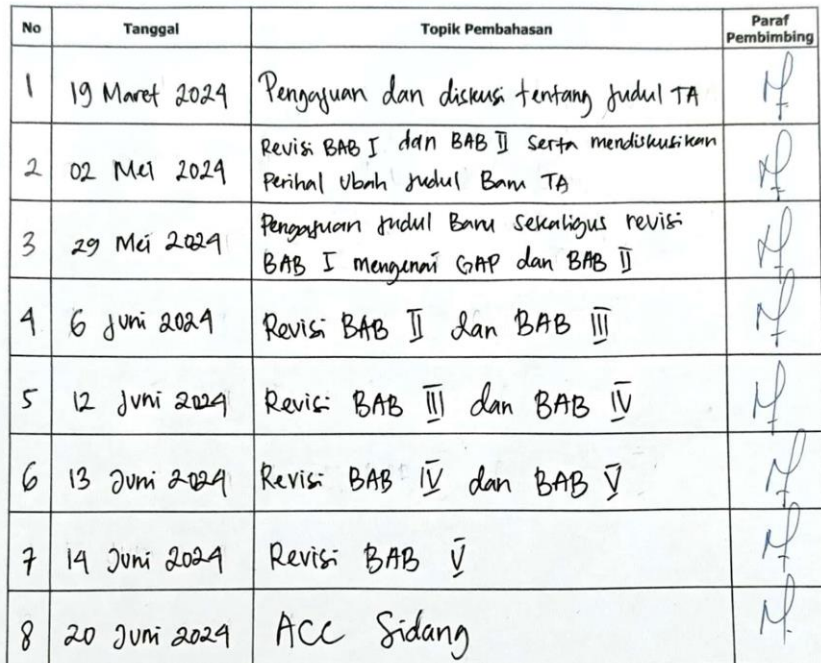 No Tanggal Topik Pembahasan Paraf
Pembimbing
1 19 Maret 2024 Pengajuan dan diskusi tentang Judul TA
Revisi BAB I dan BAB II serta mendiskusikan
2 02 Mei 2024 Perihal Ubah Judul Baru TA
Pengajuan Judul Baru sekaligus revisi
3 29 Mei 2024 BAB I mengenai GAP dan BAB II
4 6 Juni 2024 Revisi BAB II dan BAB III
5 12 Juni 2024 Revisi BAB III dan BAB IV
6 13 Juni 2024 Revisi BAB IV dan BAB V
7 14 Juni 2024 Revisi BAB V
8 20 Juni 2024 ACC Sidang